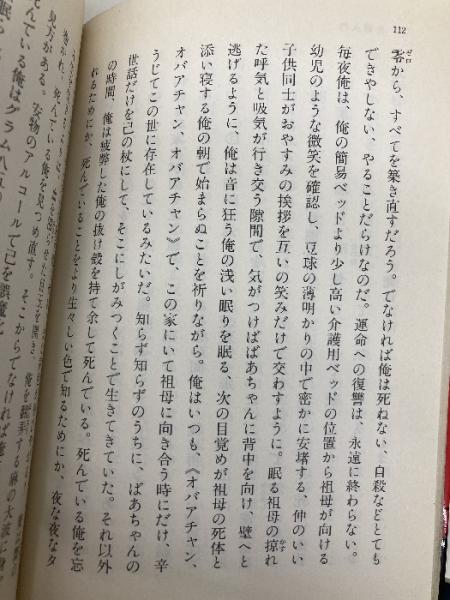 112
零から、すべてを築き直すだろう。でなければ俺は死ねない、自殺などとても
できやしない、やることだらけなのだ。運命への復讐は、永遠に終わらない。
毎夜俺は、俺の簡易ベッドより少し高い介護用ベッドの位置から祖母が向ける
幼児のような微笑を確認し、豆球の薄明かりの中で密かに安堵する、仲のいい
子供同士がおやすみの挨拶を互いの笑みだけで交わすように。眠る祖母の掠れ
た呼気と吸気が行き交う隙間で、気がつけばばあちゃんに背中を向け、壁へと
逃げるように、俺は音に狂う俺の浅い眠りを眠る、次の目覚めが祖母の死体と
添い寝する俺の朝で始まらぬことを祈りながら。俺はいつも、《オバアチャン、
オバアチャン、オバアチャン》で、この家にいて祖母に向き合う時にだけ、辛
うじてこの世に存在しているみたいだ。知らず知らずのうちに、ばあちゃんの
世話だけを己の杖にして、そこにしがみつくことで生きてきていた。それ以外
の時間、俺は疲弊した俺の抜け殻を持て余して死んでいる。死んでいる俺を忘
れるためにか、死んでいることをより生々しい色で知るためにか、夜な夜なタ